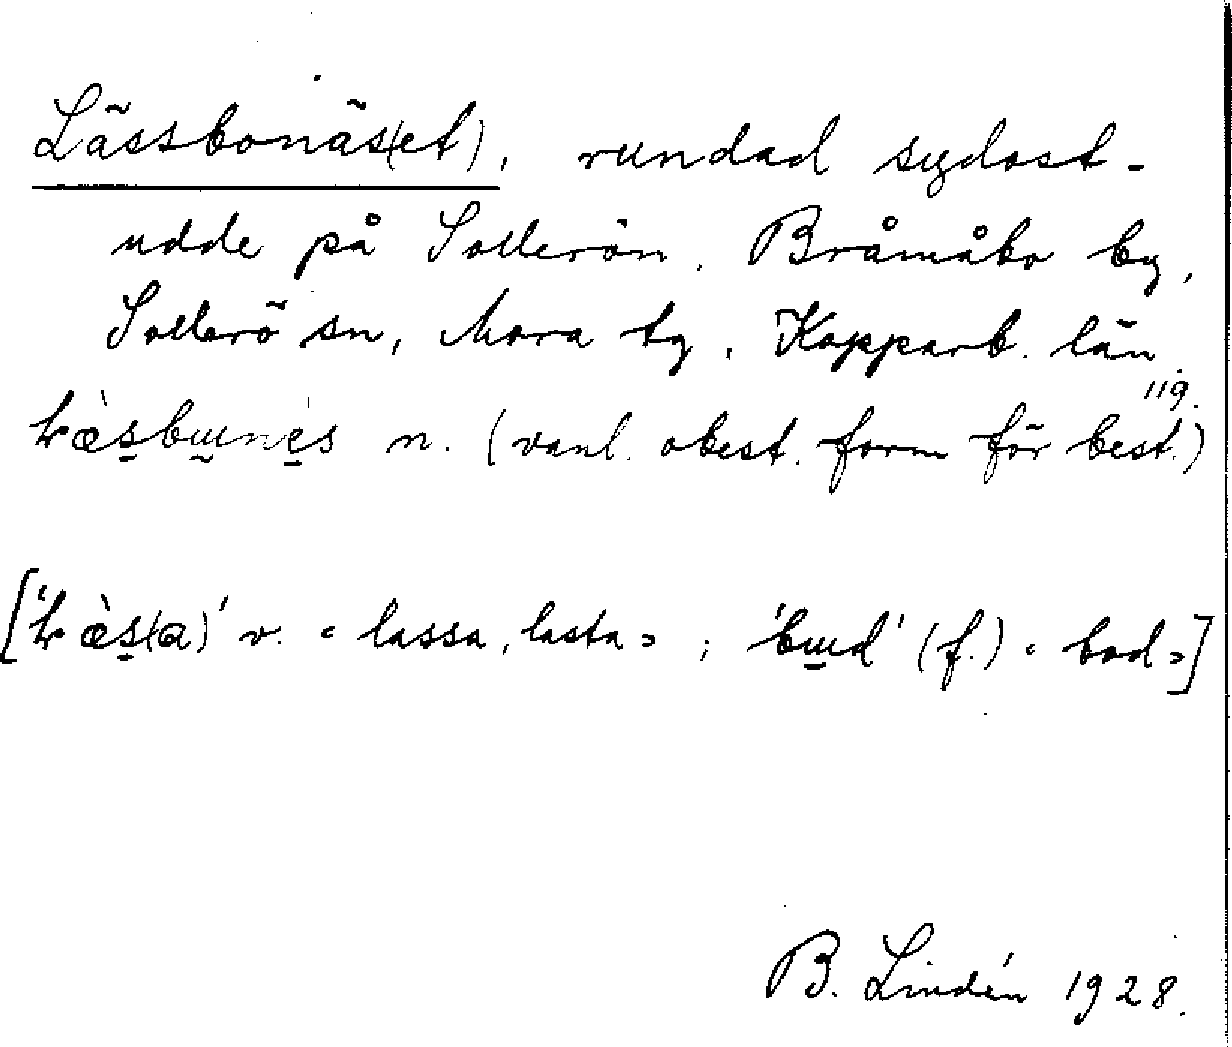 Lässbonäs(et), rundad sydost-
udde på Sollerön, Bråmåbo by,
Sollerö sn, Mora tg, Kopparb. län.
119.
n. (vanl. obest. form för best.)
v. "lassa, lasta"; (f.) "bod"]
B. Lindén 1928.